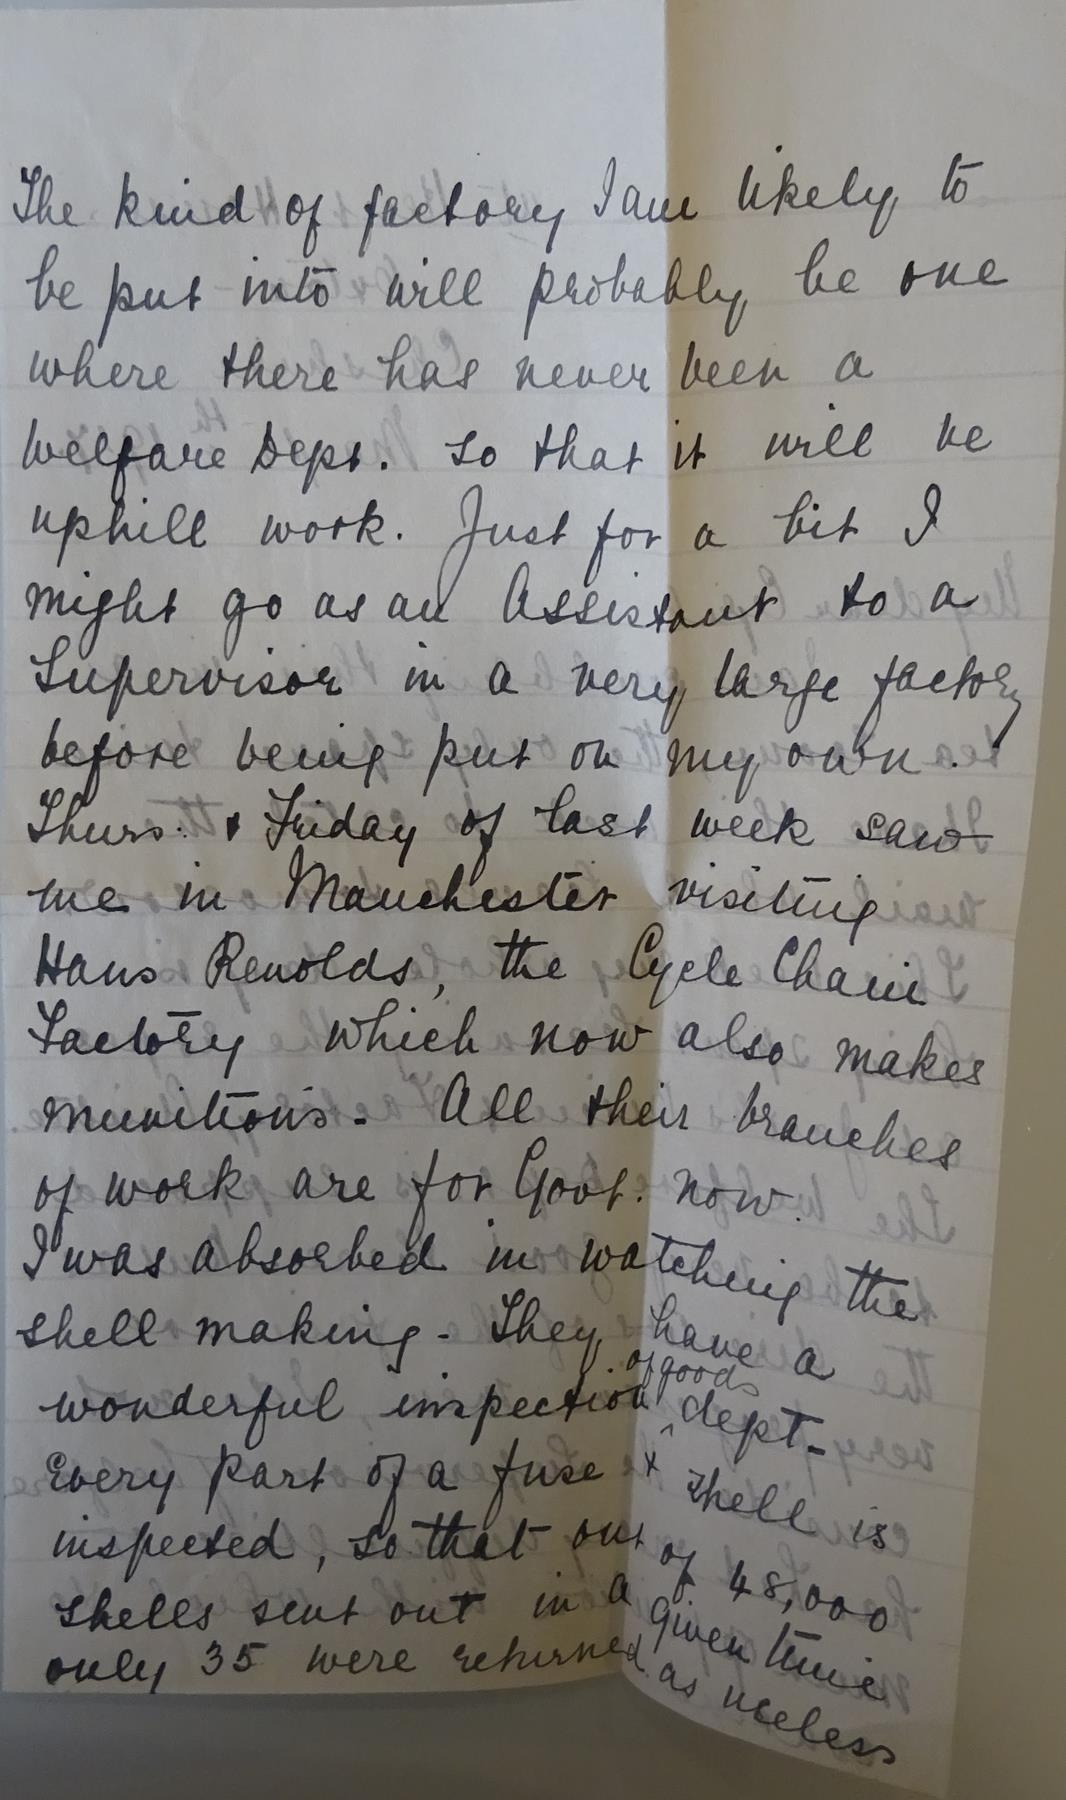 The kind of factory I am likely to
be put into will probably be one
where there has never been a
Welfare Dept. so that it will be
uphill work. Just for a bit I
might go as an Assistant to a
Supervisor in a very large factory
before being put on my own.
Thurs. & Friday of last week saw
me in Manchester visiting
Hans Renolds, the Cycle Chain
Factory which now also makes
munitions. All their branches
of work are for Govt. now.
I was absorbed in watching the
shell making - They have a
of goods
wonderful inspection ^ dept -
Every part of a fuse & shell is
inspected, so that out of 48,000
shells sent out in a given time
only 35 were returned as useless